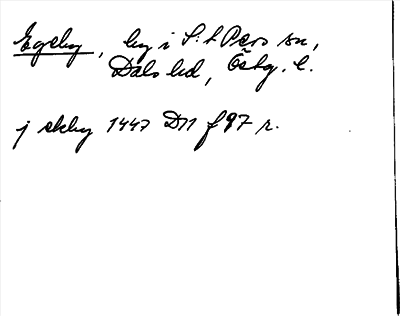 Egeby, by i S:t Pers sn,
Dals hd, Östg. l.
j ekby 1447 D11 f 97 r.